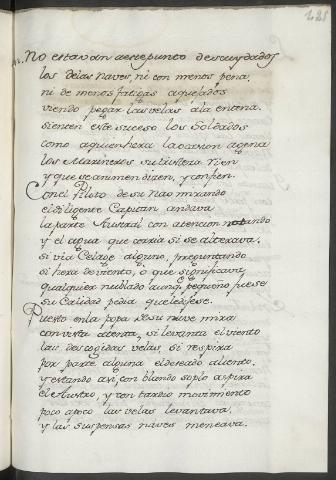 125
No estavan aeste punto descuydados
los delas naves, ni con menos pena,
ni de menos fatigas aquejados
viendo pegar las velas ala entena.
Sienten este suceso los Soldados
como aquien fuera la ocasion agena
los Marineros su tristeza
y que se animen dicen, y confien.
Con el Piloto de su nao mirando
el diligente Capitan andava
la parte Austral con atencion notando
y el agua que corria si se alterava.
si via Celage alguno, preguntando
si fuera de viento, o que significava
qualquier nublado aunq. pequeño fuese
su Calidad pedia que le dijese.
Puesto en la popa de su nave mira
con vista atenta, si levanta el viento
las descogidas velas, si respira
por parte alguna el deseado aliento,
y estando asi, con blando soplo aspira
el Austro, y con tardio movimiento
poco apoco las velas levantava,
y las suspensas naves meneava.